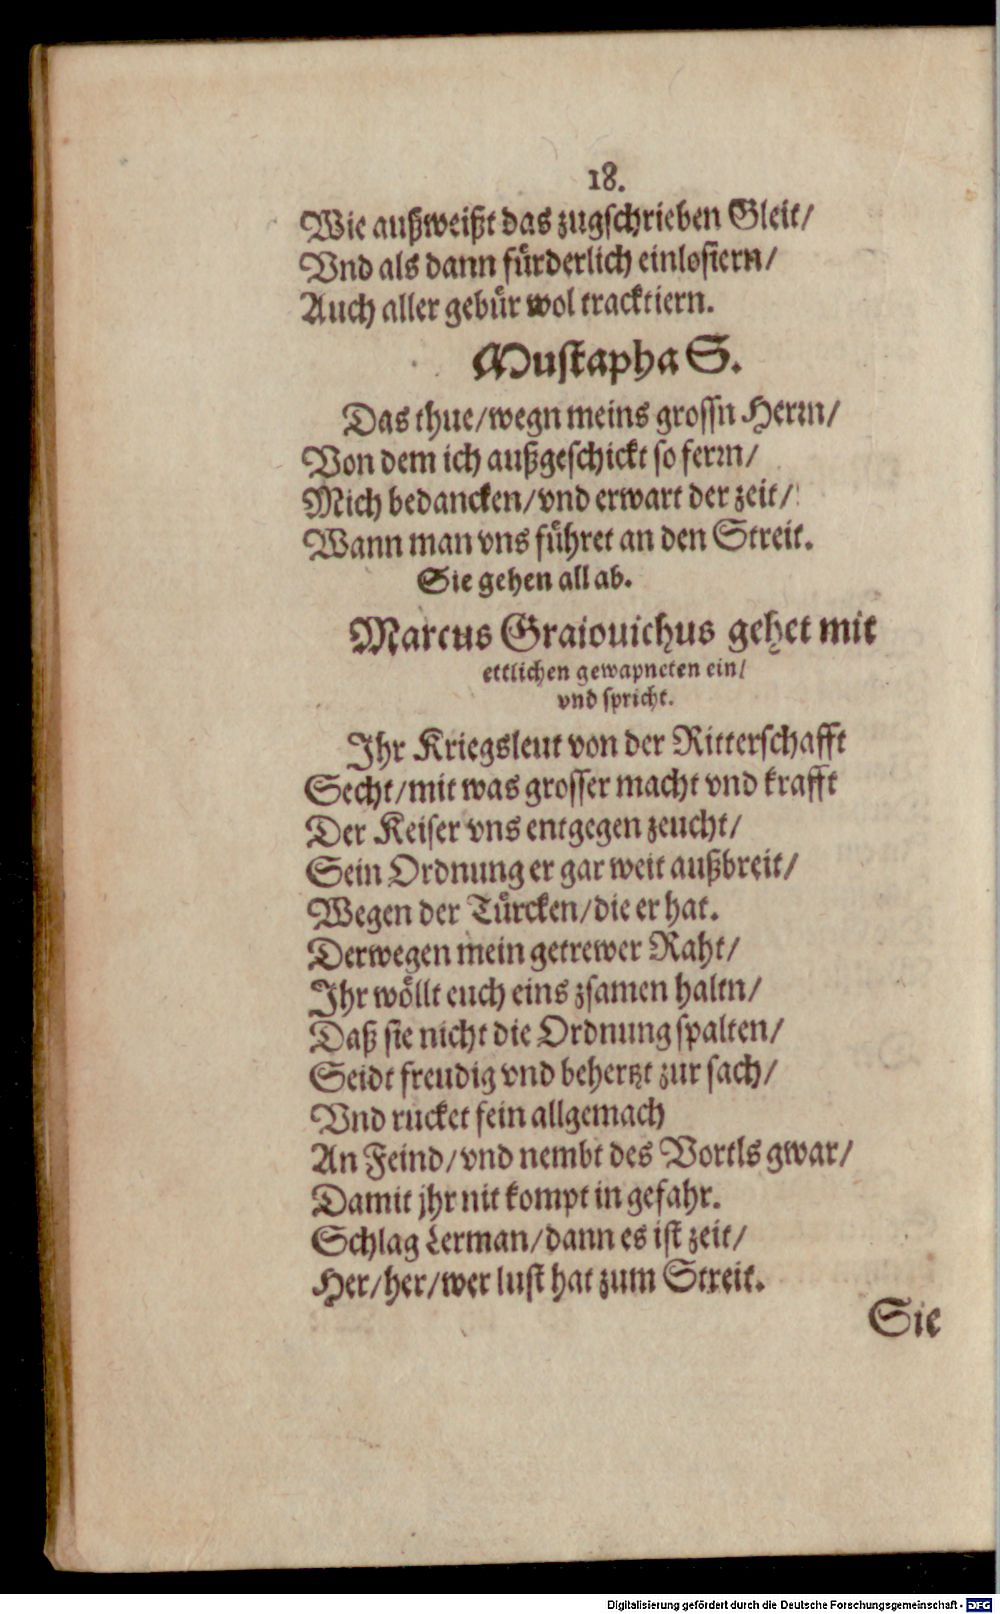 18.
Wie außweißt das zugschrieben Gleit/
Vnd als dann fürderlich einlosiern/
Auch aller gebür wol tracktiern.
Mustapha S.
Das thue/wegn meins grossn Herrn/
Von dem ich außgeschickt so ferrn/
Mich bedancken/vnd erwart der zeit/
Wann man vns führet an den Streit.
Sie gehen all ab.
Marcus Graiouichus gehet mit
ettlichen gewapneten ein/
vnd spricht.
Ihr Kriegsleut von der Ritterschafft
Secht/mit was grosser macht vnd krafft
Der Keiser vns entgegen zeucht/
Sein Ordnung er gar weit außbreit/
Wegen der Türcken/die er hat.
Derwegen mein getrewer Raht/
Ihr wöllt euch eins zsamen haltn/
Daß sie nicht die Ordnung spalten/
Seidt freudig vnd behertzt zur sach/
Vnd rucket fein allgemach
An Feind/vnd nembt des Vortls gwar/
Damit jhr nit kompt in gefahr.
Schlag Lerman/dann es ist zeit/
Her/her/wer lust hat zum Streit.
Sie
Digitalisierung gefördert durch die Deutsche Forschungsgemeinschaft - DFG